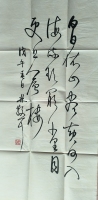 白日依山尽黄河入
海流欲窮千里目
更上一層樓